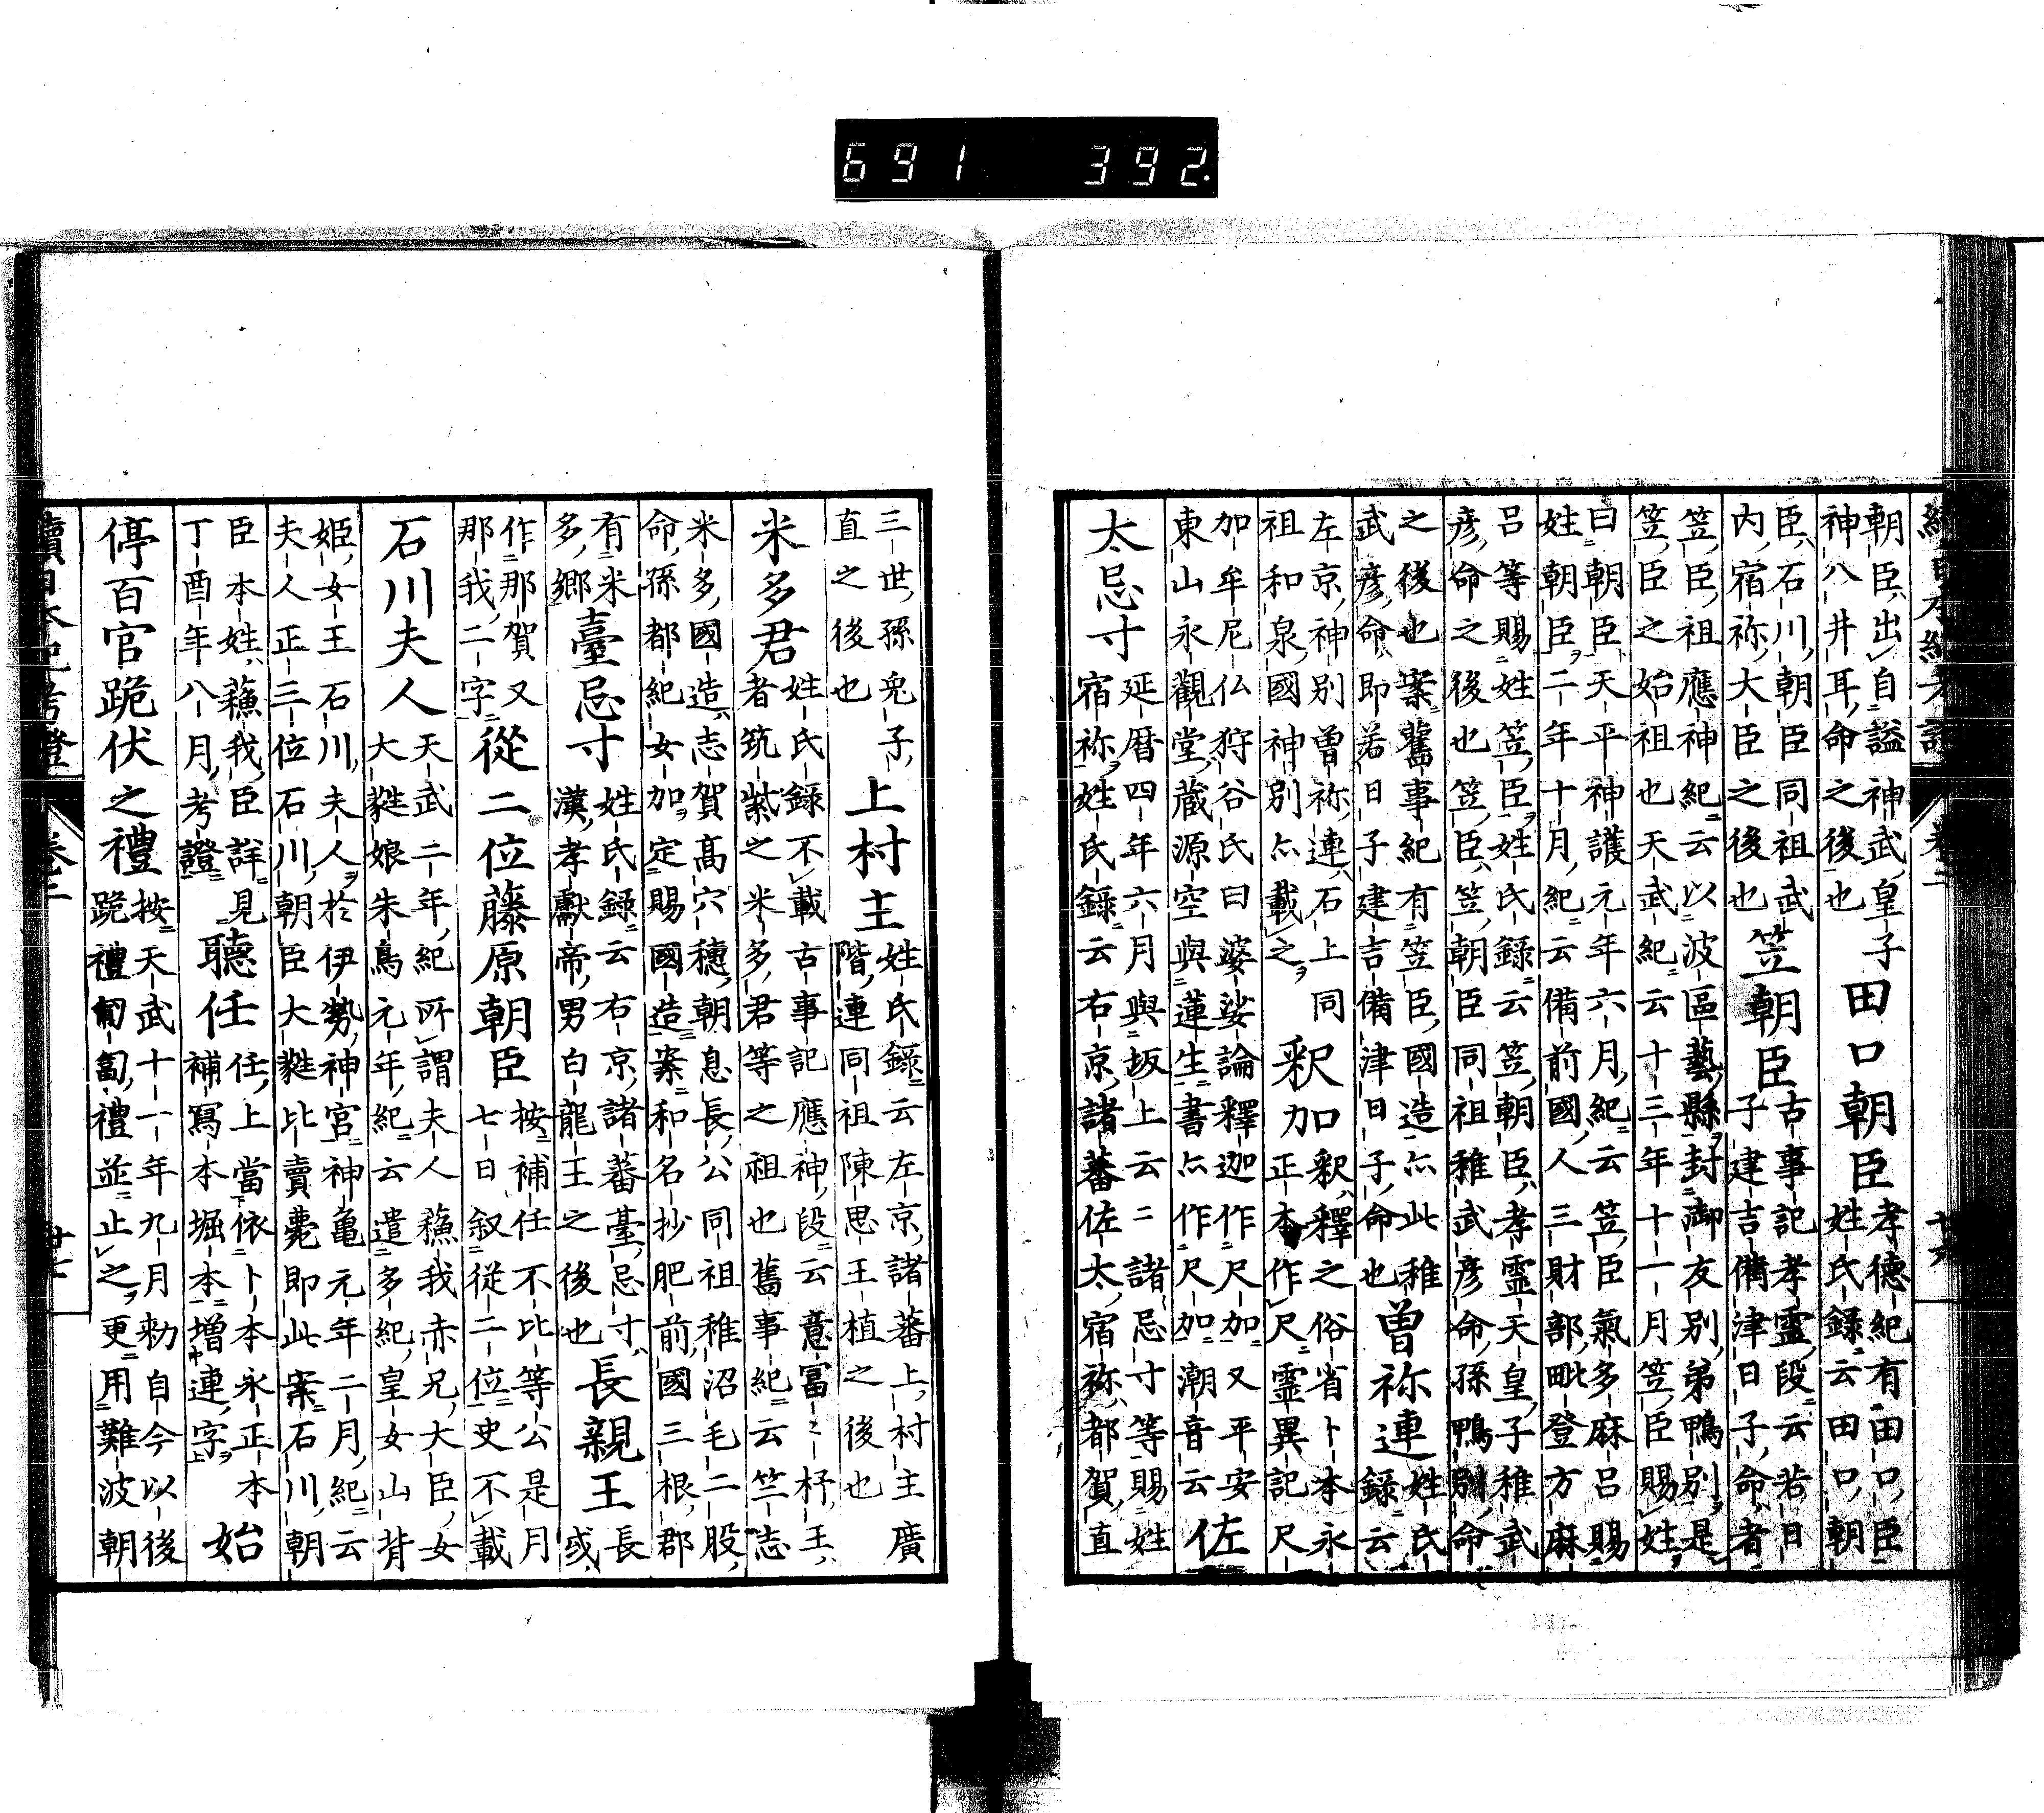 691 392
朝臣出自謚神武皇子
神八井耳命之後也
田口朝臣
孝德紀有田口臣
姓氏録云田口朝
臣石川朝臣同祖武
内宿祢大臣之後也
笠朝臣
古事記孝靈段云若日
子建吉備津日子命者
笠臣祖應神紀云以波區藝縣封御友別弟鴨別是
笠臣之始祖也天武紀云十三年十一月笠臣賜姓
曰朝臣天平神護元年六月紀云笠臣氣多麻呂賜
姓朝臣二年十月紀云備前國人三財部毗登方麻
呂等賜姓笠臣姓氏録云笠朝臣孝靈天皇子稚武
彦命之後也笠臣笠朝臣同祖稚武彦命孫鴨別命
之後也案舊事紀有笠臣國造亦此稚
武彦命即若日子建吉備津日子命也
曽祢連
姓氏
録云
左京神別曽祢連石上同
祖和泉國神別亦載之
釈加
釈釋之俗省卜本永
正本作尺靈異記尺
加牟尼仏狩谷氏曰婆娑論釋迦作尺加又平安
東山永觀堂蔵源空與蓮生書亦作尺加潮音云
佐
太忌寸
延暦四年六月與坂上云二諸忌寸等賜姓
宿祢姓氏録云右京諸蕃佐太宿祢都賀直
三世孫兎子
直之後也
上村主
姓氏録云左京諸蕃上村主廣
階連同祖陳思王植之後也
米多君
姓氏録不載古事記應神段云意冨〻杼王
者筑紫之米多君等之祖也舊事紀云竺志
米多國造志賀髙穴穗朝息長公同祖稚沼毛二股
命孫都紀女加定賜國造案和名抄肥前國三根郡
有米
多郷
臺忌寸
姓氏録云右京諸蕃臺忌寸
漢孝獻帝男白龍王之後也
長親王
長
或
作那賀又
那我二字
從二位藤原朝臣
按補任不比等公是月
七日叙從二位史不載
石川夫人
天武二年紀所謂夫人蘓我赤兄大臣女
大蕤娘朱鳥元年紀云遣多紀皇女山背
姫女王石川夫人於伊勢神宮神亀元年二月紀云
夫人正三位石川朝臣大蕤比賣薨即此案石川朝
臣本姓蘓我臣詳見
丁酉年八月考證
聽任
任上當依卜本永正本
補寫本堀本増連字
始
停百官跪伏之禮
按天武十一年九月勅自今以後
跪禮匍匐禮並止之更用難波朝